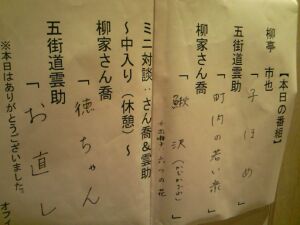 【本日の番組】
柳亭 市也
「子ほめ」
五街道雲助
「町内の若い衆」
柳家さん喬
「鰍沢(かじかざわ)」
ミニ対談:さん喬&雲助
~中入り(休憩)~
柳家さん喬
「徳ちゃん」
五街道雲助
「お直し
※本日はありがとうございました。
オフィ